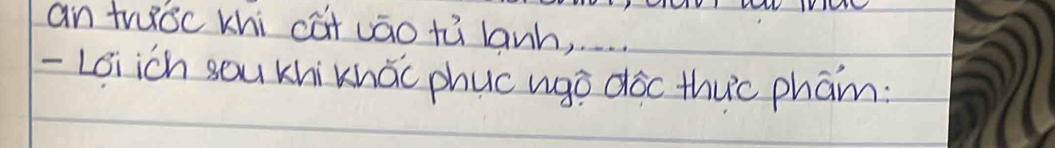 ăn trước khi cất vào tủ lạnh,....
- Lợi ích sau khi khắc phục ngộ độc thực phẩm: